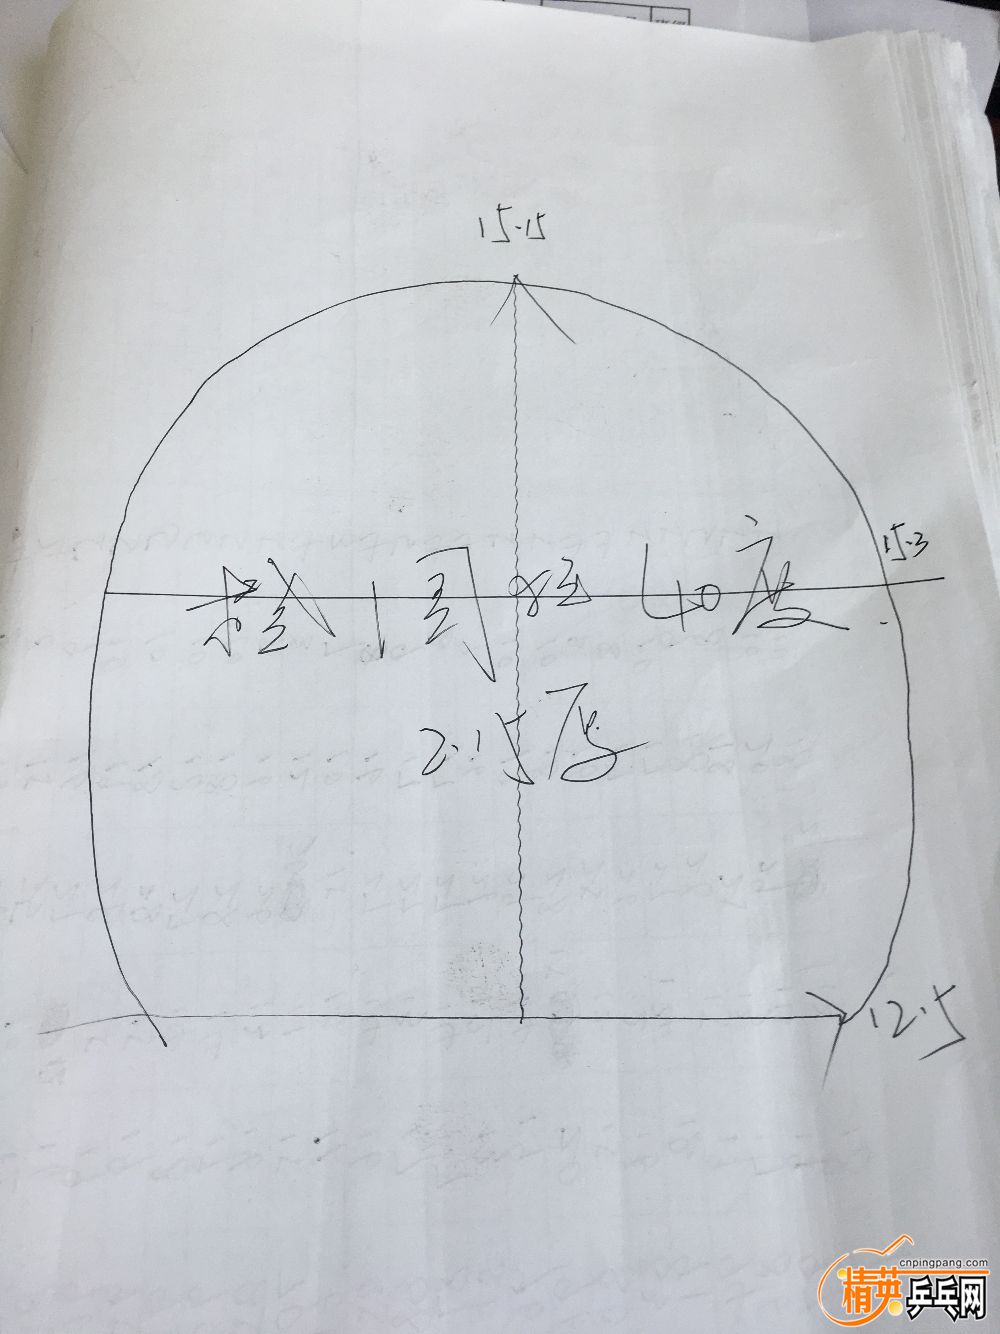 15.15
15.3
40度
2.15度
12.5
cnpingpang.com
精英乒乓网